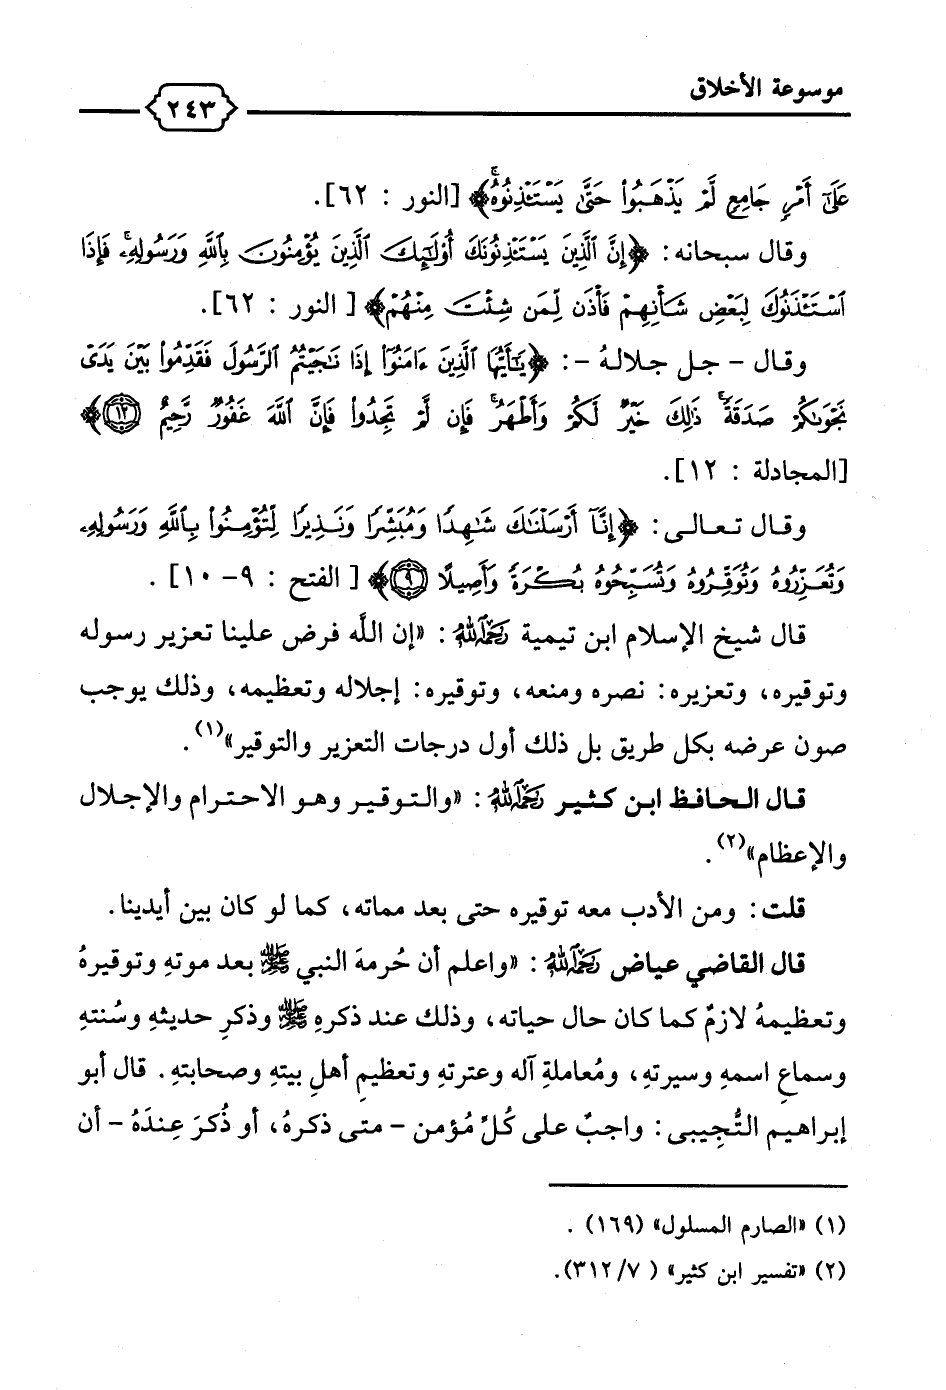 موسوعة الأخلاق
٢٤٣
عَلَىٰٓ أَمْرٖ جَامِعٖ لَّمْ يَذْهَبُوا۟ حَتَّىٰ يَسْتَـْٔذِنُوهُۚ﴾ [النور : ٦٢].
وقال سبحانه: ﴿إِنَّ ٱلَّذِينَ يَسْتَـْٔذِنُونَكَ أُو۟لَـٰٓئِكَ ٱلَّذِينَ يُؤْمِنُونَ بِٱللَّهِ وَرَسُولِهِۦۚ فَإِذَا
ٱسْتَـْٔذَنُوكَ لِبَعْضِ شَأْنِهِمْ فَأْذَن لِّمَن شِئْتَ مِنْهُمْ﴾ [ النور : ٦٢].
وقال - جل جلالهُ -: ﴿يَـٰٓأَيُّهَا ٱلَّذِينَ ءَامَنُوٓا۟ إِذَا نَـٰجَيْتُمُ ٱلرَّسُولَ فَقَدِّمُوا۟ بَيْنَ يَدَىْ
نَجْوَىٰكُمْ صَدَقَةًۚ ذَٰلِكَ خَيْرٌ لَّكُمْ وَأَطْهَرُۚ فَإِن لَّمْ تَجِدُوا۟ فَإِنَّ ٱللَّهَ غَفُورٌ رَّحِيمٌ ١٢﴾
[المجادلة : ١٢].
وقال تعالى: ﴿إِنَّآ أَرْسَلْنَـٰكَ شَـٰهِدًا وَمُبَشِّرًا وَنَذِيرًا لِّتُؤْمِنُوا۟ بِٱللَّهِ وَرَسُولِهِۦ
وَتُعَزِّرُوهُ وَتُوَقِّرُوهُ وَتُسَبِّحُوهُ بُكْرَةً وَأَصِيلًا ٩﴾ [ الفتح : ٩- ١٠] .
قال شيخ الإسلام ابن تيمية رَحِمَهُ اللَّهُ : «إن اللَّه فرض علينا تعزير رسوله
وتوقيره، وتعزيره: نصره ومنعه، وتوقيره: إجلاله وتعظيمه، وذلك يوجب
صون عرضه بكل طريق بل ذلك أول درجات التعزير والتوقير»(١).
قال الحافظ ابن كثير رَحِمَهُ اللَّهُ : «والتوقير وهو الاحترام والإجلال
والإعظام»(٢).
قلت: ومن الأدب معه توقيره حتى بعد مماته، كما لو كان بين أيدينا.
قال القاضي عياض رَحِمَهُ اللَّهُ : «واعلم أن حُرمةَ النبي ﷺ بعد موتهِ وتوقيرهُ
وتعظيمهُ لازمٌ كما كان حال حياته، وذلك عند ذكرهِ ﷺ وذكرِ حديثهِ وسُنتهِ
وسماعِ اسمهِ وسيرتهِ، ومُعاملةِ آله وعترتهِ وتعظيمِ أهلِ بيتهِ وصحابتهِ. قال أبو
إبراهيم التُّجِيبى: واجبٌ على كُلِّ مُؤمن - متى ذكرهُ، أو ذُكرَ عِندَهُ - أن
(١) «الصارم المسلول» (١٦٩) .
(٢) «تفسير ابن كثير» ( ٣١٢/٧).